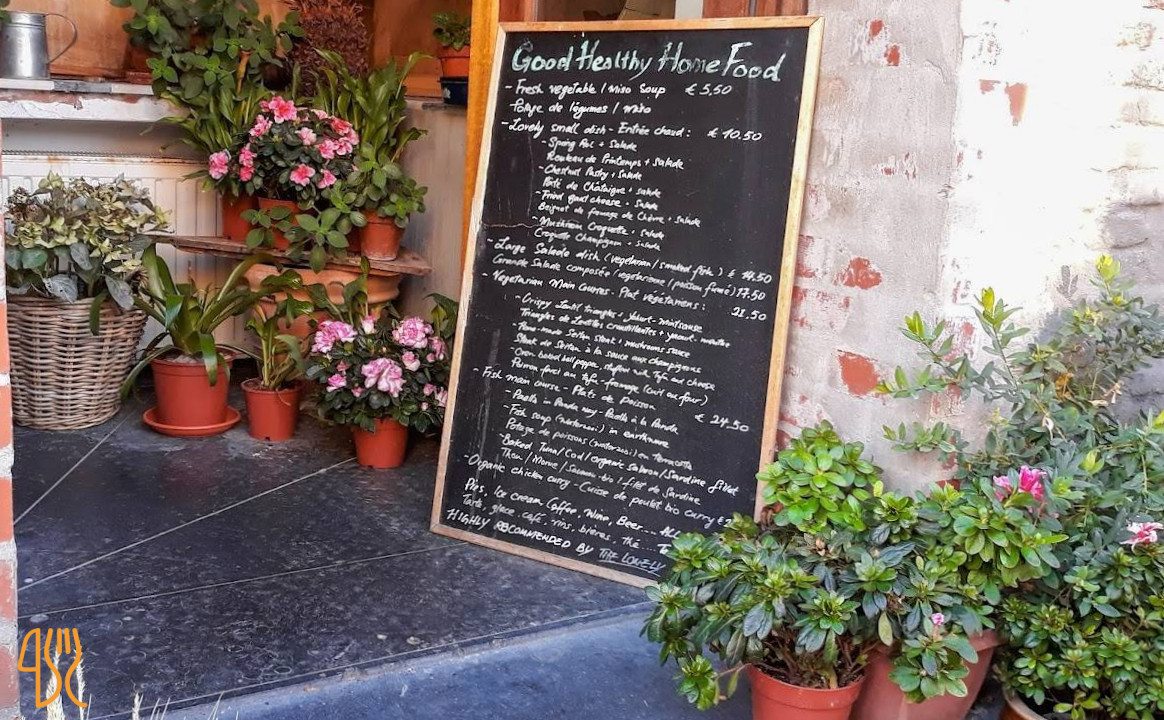 Good Healthy Home Food
- Fresh vegetable / Miso Soup € 5,50
Potage de légumes / miso
- Lovely small dish - Entrée chaud : € 10.50
- Spring Roc + Salade
Rouleau de Printemps + salade
- Chestnut Pastry + Salade
Paté de Châtaigne + salade
- Fried goat cheese + Salade
Beignet de fromage de Chèvre + Salade
- Mushroom Croquette + Salade
Croquette Champignon + Salade
- Large Salade dish (vegetarian / smoked fish) € 14.50
Grande Salade composée (vegetarienne / poisson fumé) 17.50
- Vegetarian Main Courses - Plat végétariens : 21.50
- Crispy Lentil triangles + Yohurt-mint sauce
Triangles de Lentilles croustillantes + yaourt-menthe
- Home-made Seitan Steak + mushrooms sauce
Steak de Seitan à la sauce aux champignons
- Oven baked bell pepper, stuffed with Tofu and cheese
Poivron farci au tofu-fromage (cuit au four)
- Fish main course - Plats de Poisson € 24.50
- Paella in Panda way - Paella à la Panda
- Fish soup (waterzooi) in earthware
Potage de poissons (waterzooi) en terracotta
- Baked Tuna / Cod / organic salmon / Sardine fillet
Thon / Morue / Saumon-bio / filet de Sardine
- Organic chicken curry - Cuisse de poulet bio curry €
Pies, Ice cream, Coffee, Wine, Beer... ALL
Tarte, glace, café, vins, bières, thé...
HIGHLY RECOMMENDED BY THE LONELY